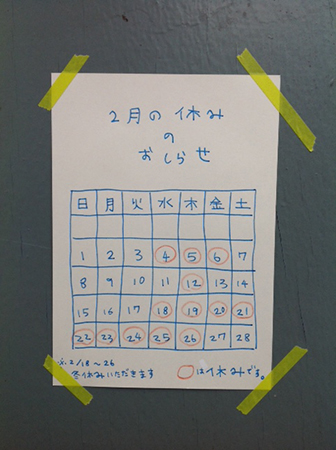 2月の休み
の
おしらせ
日 月 火 水 木 金 土
1 2 3 4 5 6 7
8 9 10 11 12 13 14
15 16 17 18 19 20 21
22 23 24 25 26 27 28
※2/18〜26
冬休みいただきます
○は休みです。